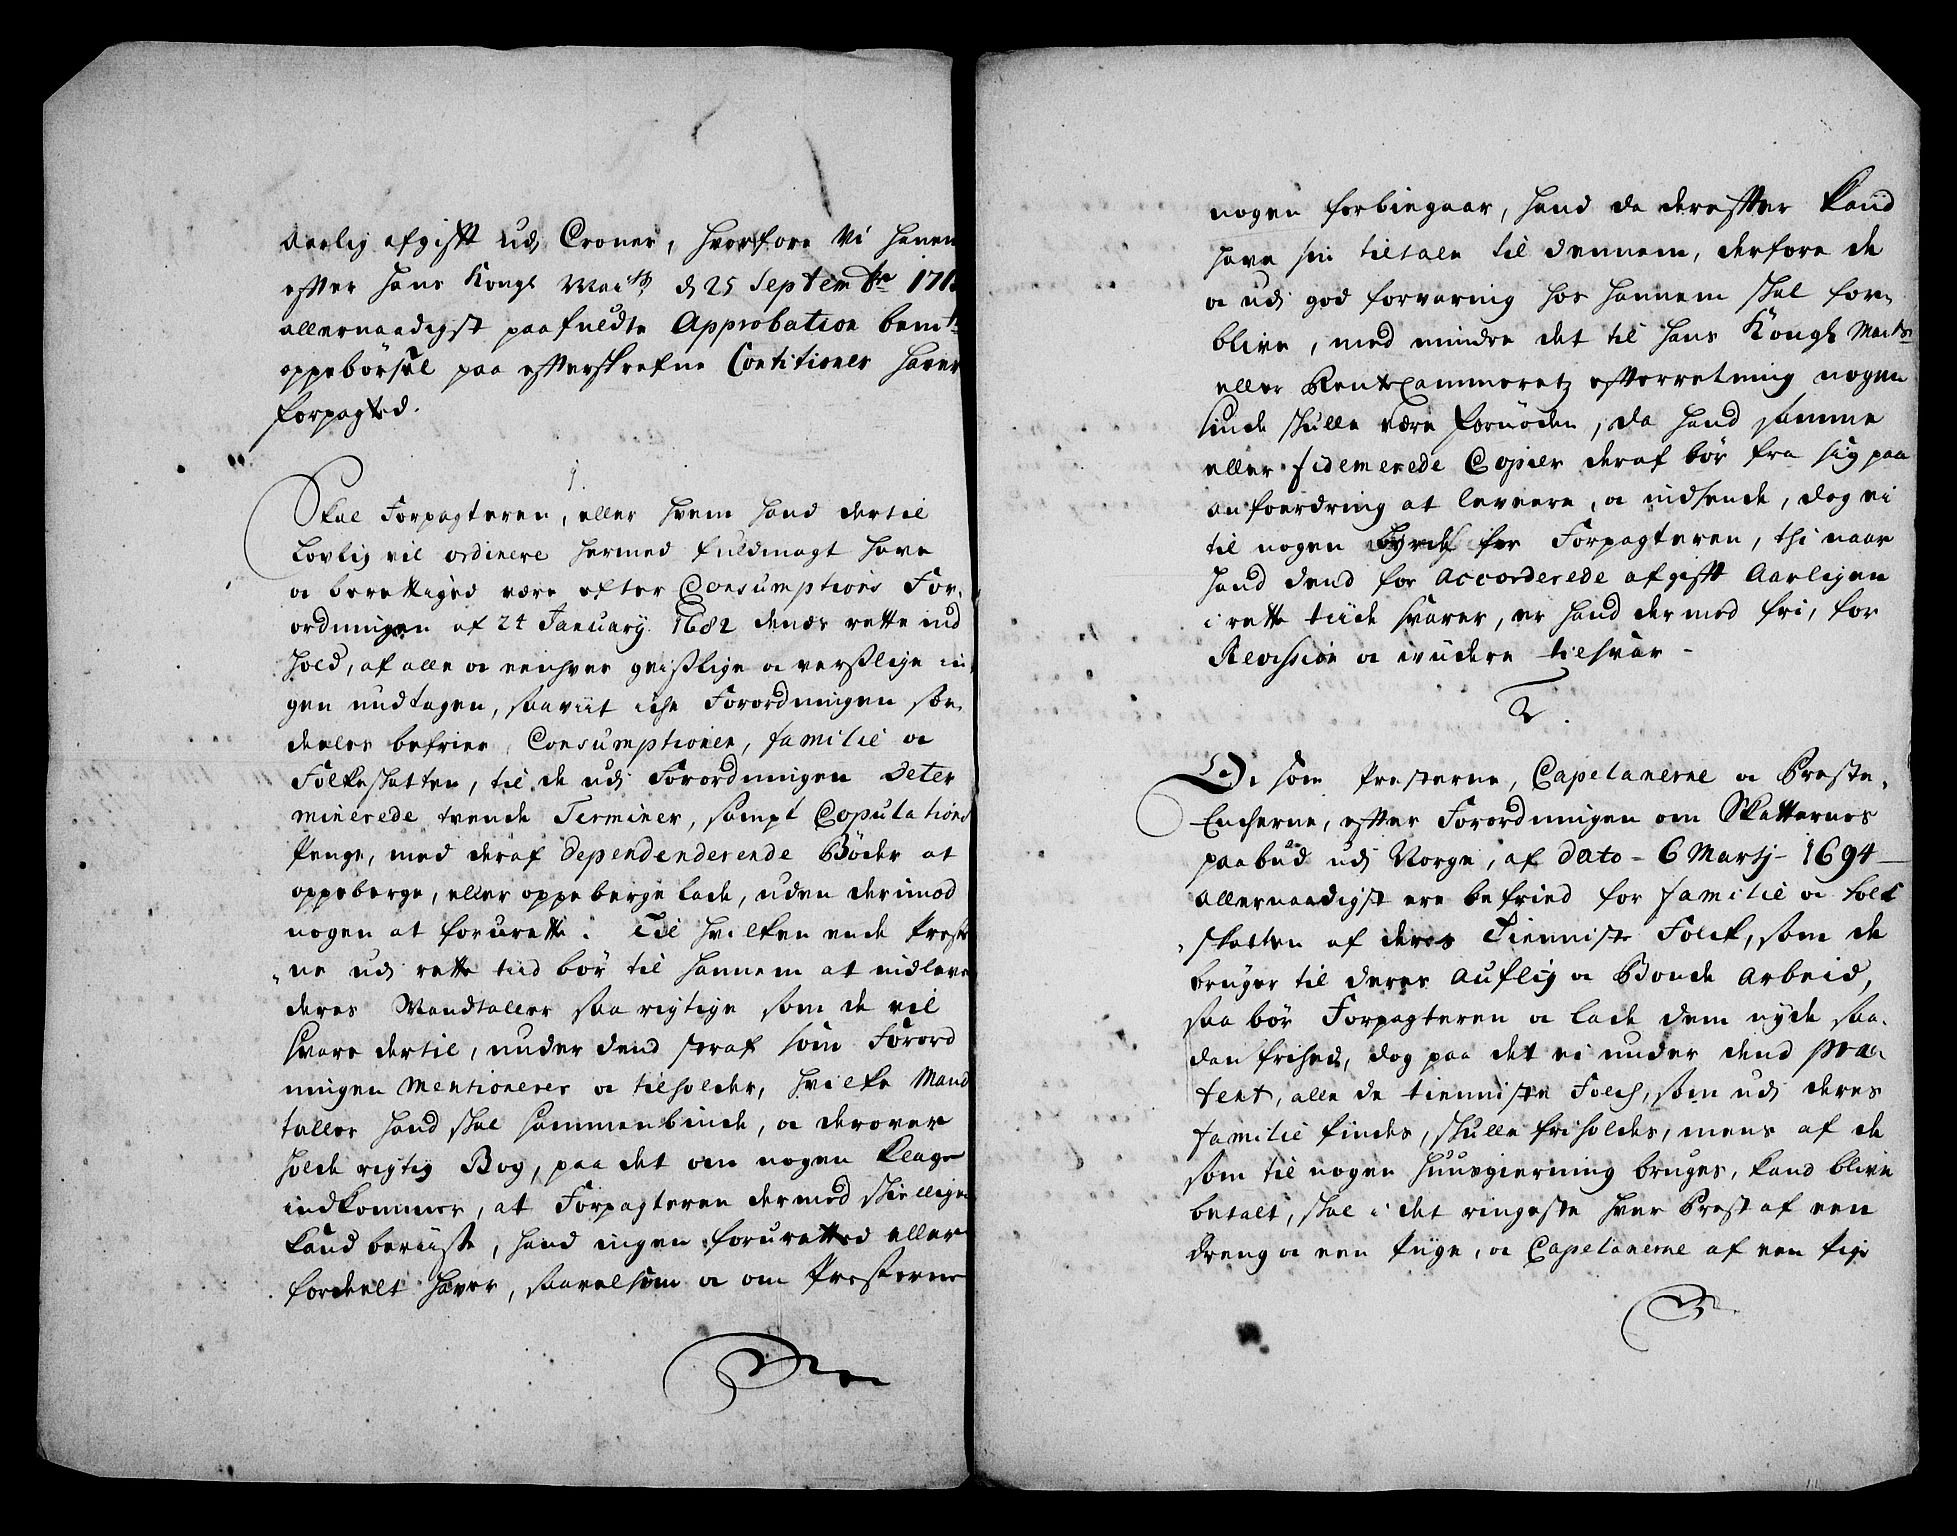 Aarlig afgifft udj Croner, hvorfore Vi hanem
effter Hans Kongl Maÿtts d 25 Septembr 171
allernaadigst paafuldte Approbation bemte
oppebörsel paa effterskrefne Contitioner haver
forpagted.
1.
Skal Forpagteren, eller hvem hand dertil
Lovlig vil ordinere hermed fuldmagt have
oc berettiged være efter Consumptions For¬
ordningen af 24 January 1682 denes rette ind
hold, af alle oc eenhver geistlige oc verslige in
gen undtagen, saaviit iche Forordningen son¬
derlis befrier, Consumptionen, familie oc
Folkeskatten, til de udj Forordningen Deter
minerede trende Terminer, sampt Copulations
Penge, med deraf dependenderende Böder at
oppeberge, eller oppeberge lade, uden derimod
nogen at forurette. Til hvilken ende Præster
ne udj rette tiid bör til hannem at indlevere
deres Mandtaller saa rigtige som de vil
svare dertil, under dend straf som Forord
ningen mentionerer oc tilholder, hvilke Mand
taller hand skal sammenbinde, oc derover
holde rigtig Bog, paa det om nogen Klage
indkommer, at Forpagteren dermed skielligen
kand beviiste, hand ingen foruretted eller
fordeelt haver, saavelsom oc om Præsterne
nogen forbiegaar, hand da dereffter kand
have sin tiltale til dennem, derfore de
oc udj god forvaring hos hannem skal for¬
blive, med mindre det til Hans Kongl Maÿts
eller RenteCammeretz effterretning nogen
sinde skulle være fornöden, da hand samme
eller fidemerede Copier deraf bör fra sig paa
anfordring at levere, oc indsende, dog ei
til nogen byrde for Forpagteren, thi naar
hand dend for Accorderede afgifft Aarligen
i rette tiide svarer, er hand dermed fri, for
Revision oc viidere tilsvar -
2.
Som Presterne, Capelanerne oc Preste¬
Encherne, effter Forordningen om Skatternes
paabud udj Norge, af dato - 6 Martj - 1694
allernaadigst ere befried for familie oc folk
skatten af deres Tienniste Folck, som de
bruger til deres Aufling oc Bonde Arbeid,
saa bör Forpagteren oc lade dem nyde saa¬
dan frihed, dog paa det ei under dend præ¬
text, alle de tienniste Folch, som udj deres
familie findes, skulle friholdes, mens af de
som til nogen Huusgierning bruges, kand blive
betalt, skal i det ringeste hver Prest af een
dreng oc een Piige, oc Capelanerne af een Pige